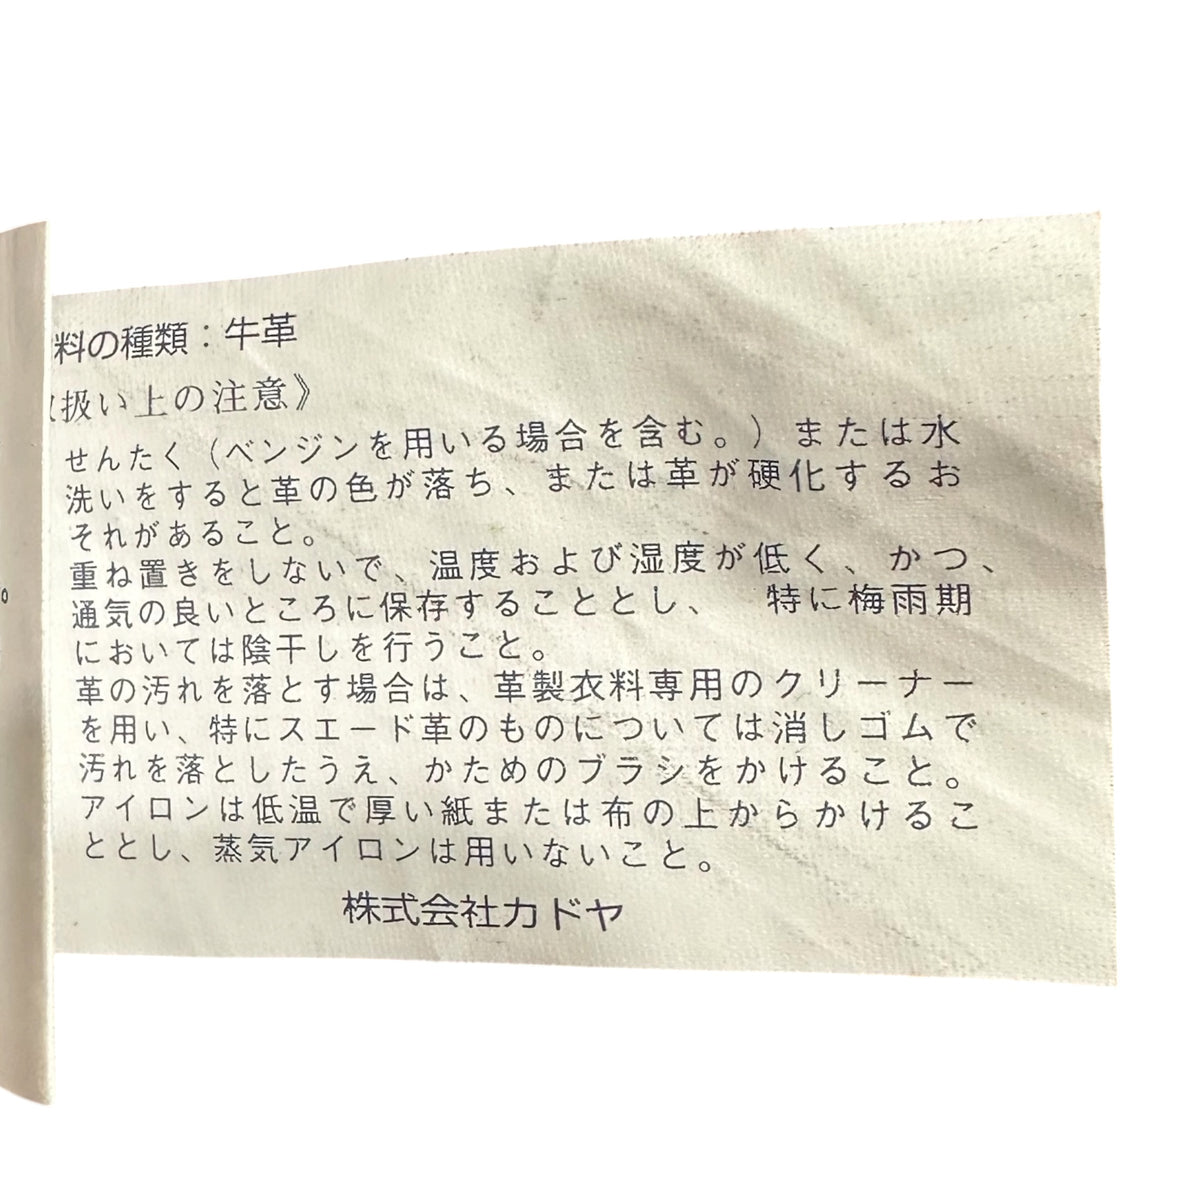 料の種類：牛革
扱い上の注意》
せんたく（ベンジンを用いる場合を含む。）または水
洗いをすると革の色が落ち、または革が硬化するお
それがあること。
重ね置きをしないで、温度および湿度が低く、かつ、
通気の良いところに保存することとし、　特に梅雨期
においては陰干しを行うこと。
革の汚れを落とす場合は、革製衣料専用のクリーナー
を用い、特にスエード革のものについては消しゴムで
汚れを落としたうえ、かためのブラシをかけること。
アイロンは低温で厚い紙または布の上からかけるこ
ととし、蒸気アイロンは用いないこと。
株式会社カドヤ